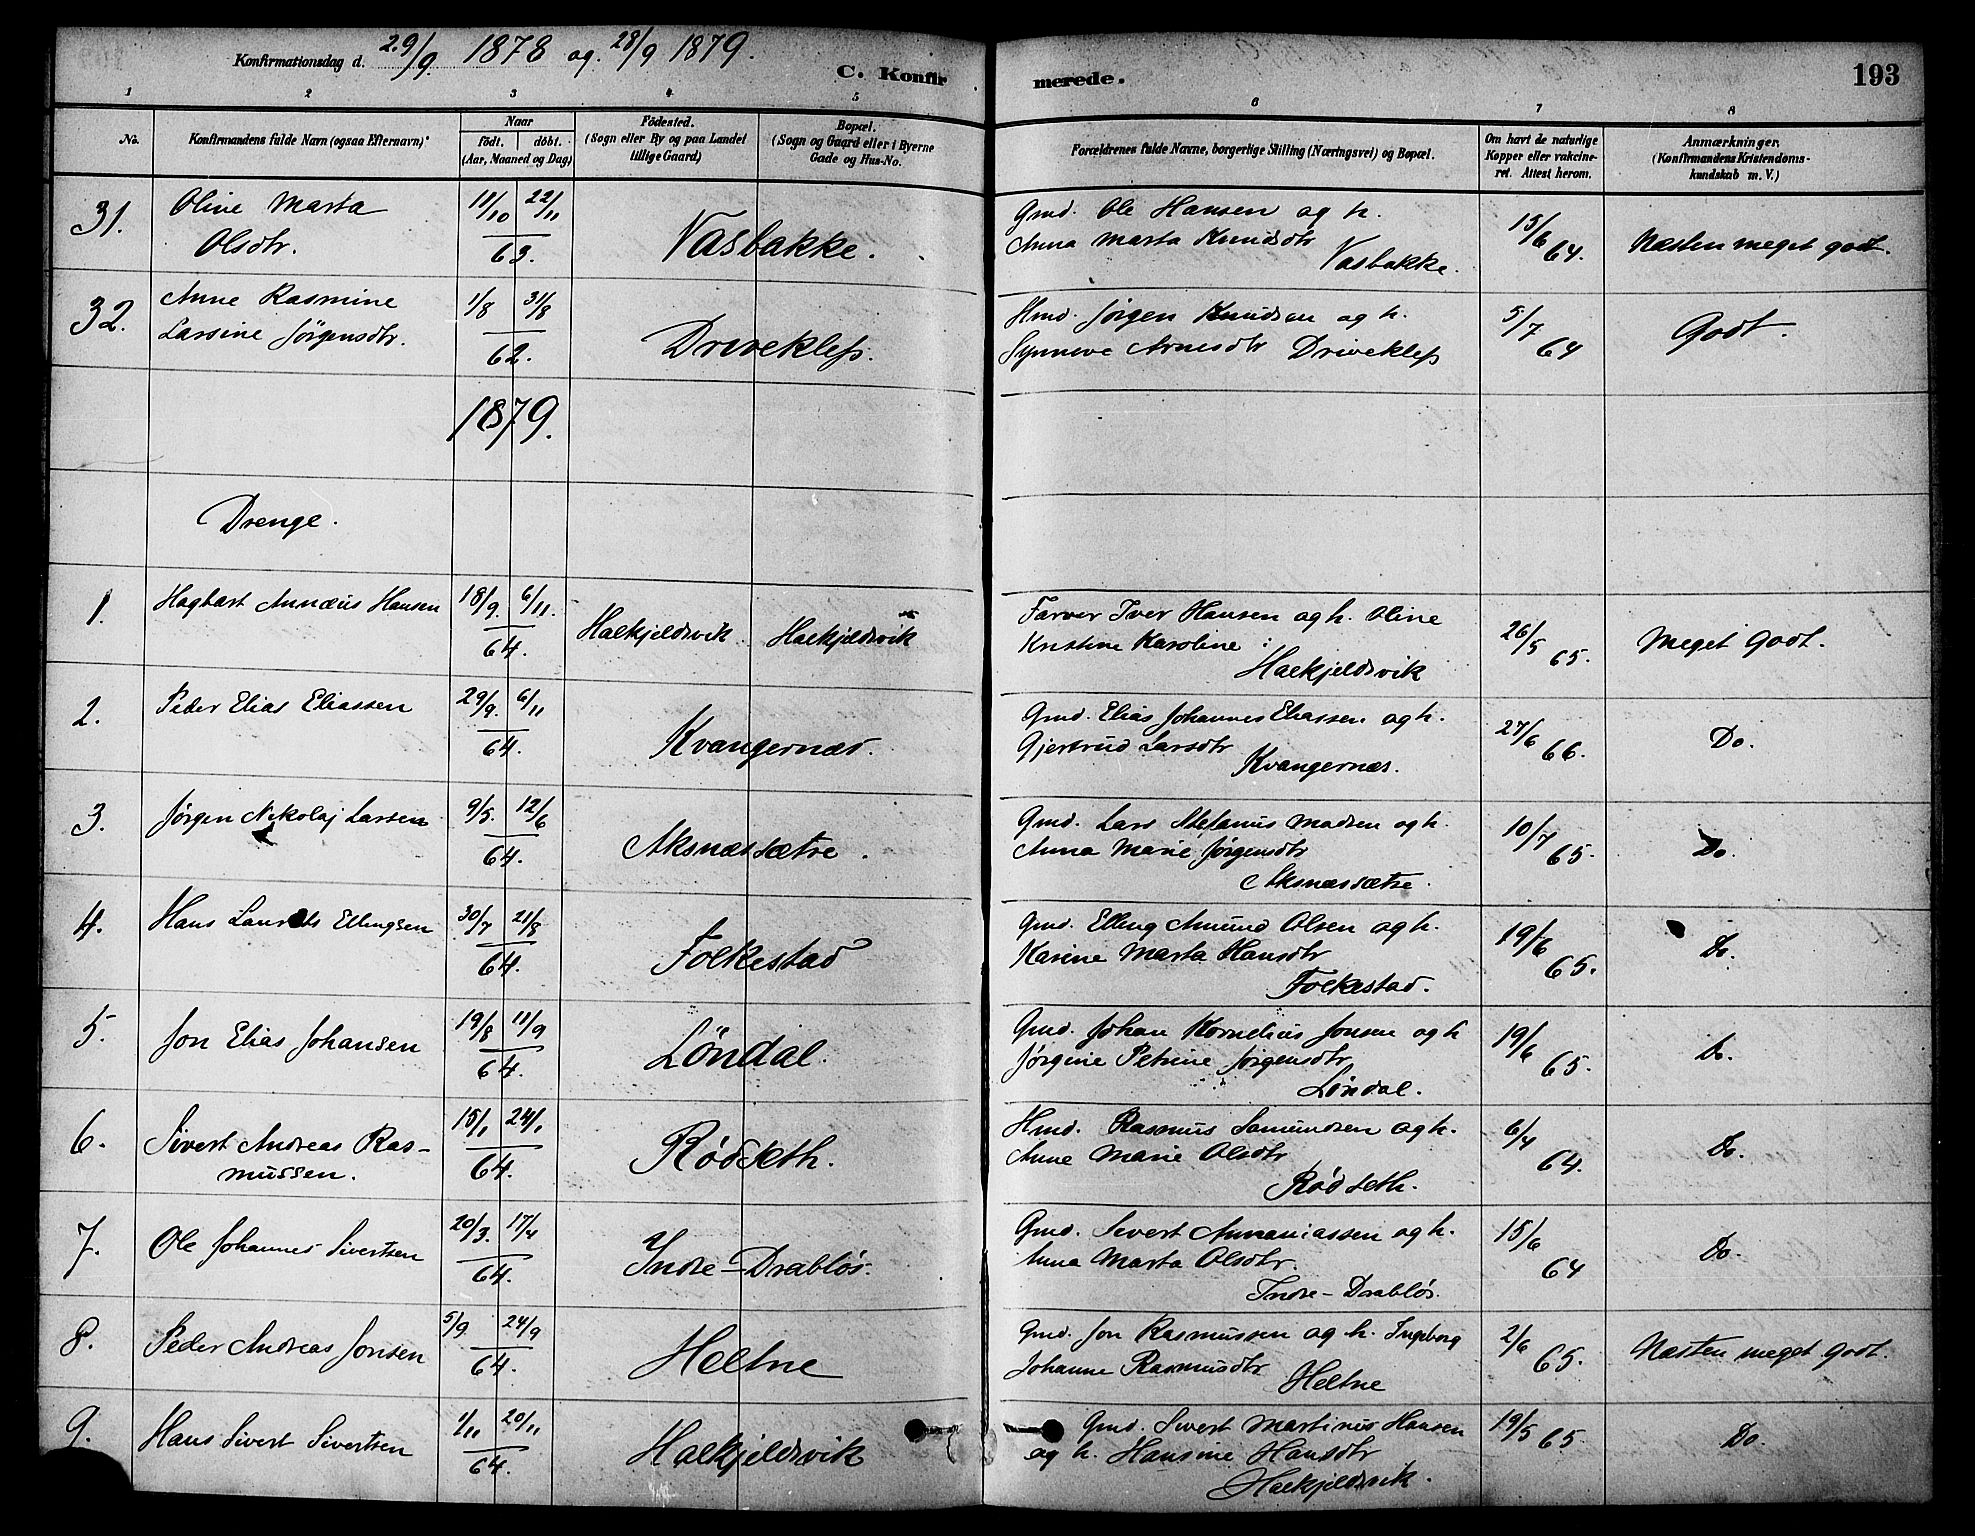 Konfirmationsdag d. 29/9. 1878 og. 28/9 1879.
C. Konfirmerede.
193
1 2 3 4 5 6 7 8
No.
Konfirmandens fulde Navn (ogsaa Efternavn)
Naar
født. døbt.
(Aar, Maaned og Dag)
Fødested.
(Sogn eller By og paa Landet
tillige Gaard)
Bopæl.
(Sogn og Gaard eller i Byerne
Gade og Hus-No.
Forældrenes fulde Navne, borgerlige Stilling (Næringsvei) og Bopæl.
Om havt de naturlige
Kopper eller vakcine-
ret. Attest herom.
Anmærkninger.
(Konfirmandens Kristendoms-
kundskab m. V.)
31. Oline Marta
Olsdtr.
11/10 22/11
63.
Vasbakke.
Gmd. Ole Hansen og h.
Anna Marta Knudsdtr
Vasbakke.
13/6 64.
Næsten meget godt.
32. Anne Rasmine
Larsine Jörgensdtr.
1/8 31/8
62.
Driveklep.
Hmd. Jørgen Knudsen og h.
Synneve Arnesdtr Driveklep
5/7 64
Godt.
1879.
Drenge.
1. Hagbart Annæus Hansen
18/9. 6/11.
64.
Halkjeldsvik. Halkjeldsvik
Farver Iver Hansen og h. Oline
Kristine Karoline :
Halkjeldsvik
26/5 65.
Meget Godt.
2. Peder Elias Eliassen
29/9. 6/11
64.
Kvangernæs.
Gmd. Elias Johannes Eliassen og h.
Gjertrud Larsdtr
Kvangernæs.
27/6 66.
Do.
3. Jørgen Nikolaj Larsen
9/5. 12/6
64.
Aksnæssætre.
Gmd. Lars Stefanus Madsen og h.
Anna Marie Jørgensdtr
Aksnæssætre.
10/7 65.
Do.
4. Hans Laurits Ellingsen
30/7 21/8
64.
Folkestad
Gmd. Elling Amund Olsen og h.
Karine Marta Hansdtr
Folkestad.
19/6 65.
Do.
5. Jon Elias Johansen
19/8 11/9
64.
Löndal.
Gmd. Johan Kornelius Jonsen og h
Jørgine Petrine Jørgensdtr
Löndal.
19/6 65.
Do.
6. Sivert Andreas Ras-
mussen.
15/1 24/1
64.
Rødseth.
Hmd. Rasmus Samundsen og h.
Anne Marie Olsdtr
Rødseth.
6/4 64.
Do.
7. Ole Johannes Sivertsen
20/3. 17/4
64.
Indre-Drabløs.
Gmd. Sivert Annaniassen og h.
Anna Marta Olsdtr.
Indre-Drabløs.
15/6 64
Do.
8. Peder Andreas Jonsen
5/9. 24/9
64.
Heltne
Gmd. Jon Rasmussen og h. Ingeborg
Johanne Rasmusdtr
Heltne
2/6 65.
Næsten meget godt.
9. Hans Sivert Sivertsen
1/11 20/11
64.
Halkjeldsvik
Gmd. Sivert Martinus Hansen
og h. Hansine Hansdtr
Halkjeldsvik.
19/5 65
Do.